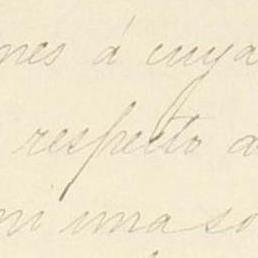 nes á cuya
respecto a
ni una so